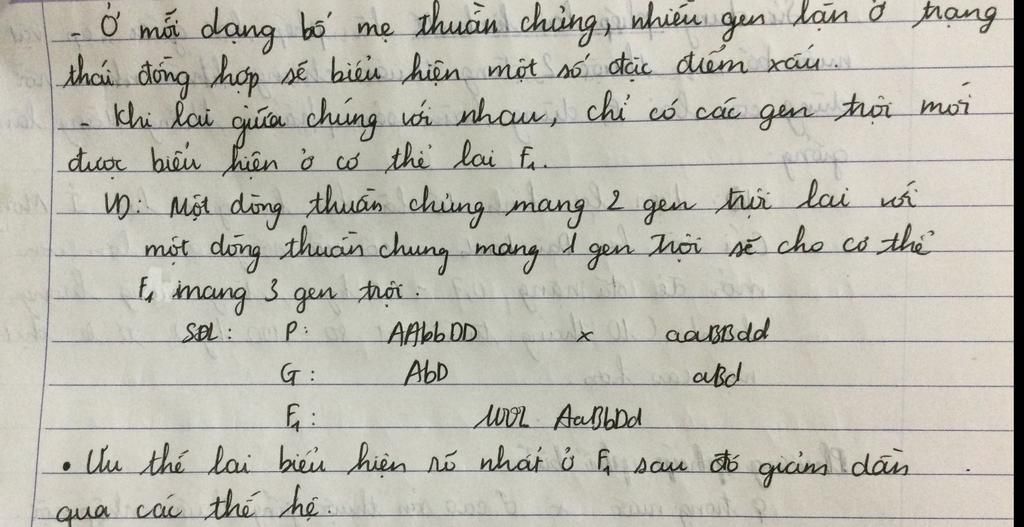 - Ở mỗi dạng bố mẹ thuần chủng, nhiều gen lặn ở trạng
thái đồng hợp sẽ biểu hiện một số đặc điểm xấu.
- Khi lai giữa chúng với nhau, chỉ có các gen trội mới
được biểu hiện ở cơ thể lai F1.
VD: Một dòng thuần chủng mang 2 gen trội lai với
một dòng thuần chung mang 1 gen trội sẽ cho cơ thể
F1 mang 3 gen trội.
SĐL: P: AAbbDD x aaBBdd
G: AbD aBd
F1: 100% AaBbDd
• Ưu thế lai biểu hiện rõ nhất ở F1 sau đó giảm dần .
qua các thế hệ.